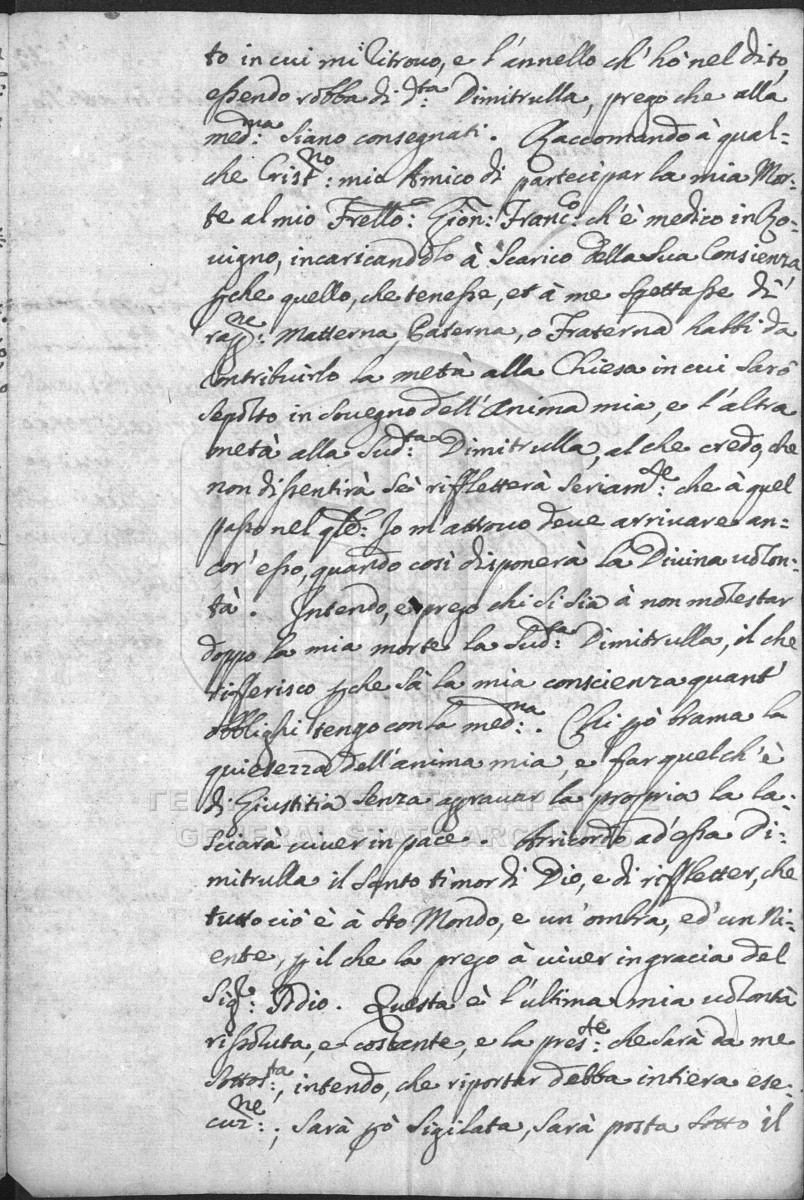 to in cui mi ritrovo, e l'annello ch'hò nel dito,
essendo robba di d:ta Dimitrulla, prego che alla
med:ma siano consegnati. Raccomando à qual=
che Crist:no mio Amico di partecipar la mia Mor=
te al mio Frello: Gion: Franc:o ch'è medico in Ro=
vigno, incaricandolo à scarico della sua Consienza
che quello, che tenesse, et à me spettasse di
rag:ne Matterna, Paterna, o Fraterna habbi da
contribuirlo la metà alla Chiesa in cui sarò
sepolto in sovegno dell'anima mia, e l'altra
metà alla sud:ta Dimitrulla, al che credo, che
non dissentirà se rifletterà seriam:te che à quel
passo nel qle: Io m'attrovo deve arrivare an=
cor'esso, quando così disponerà la Divina volon=
tà. Intendo, e prego chi si sia à non molestar
doppo la mia morte la sud:ta Dimitrulla, il che
rifferisco che sà la mia conscienza quant'
obblighi tengo con la med:ma. Chi pò brama la
quiesezza dell'anima mia, e far quel ch'è
di Giustitia senza agravar la propria la la=
sciarà viver in pace. Arricordo ad'essa Di=
mitrulla il santo timor di Dio, e di riffletter, che
tutto ciò è à sto Mondo, e un'ombra, ed'un ni=
ente, p il che la prego à viver in gracia del
Sig:r Iddio. Questa è l'ultima mia volontà
rissoluta, e costante, e la pres:te che sarà da me
sottos:ta, intendo, che riportar debba intiera ese=
cuz:ne; sarà pò sigilata, sarà posta sotto il
ΓΕΝΙΚΑ ΑΡΧΕΙΑ ΤΟΥ ΚΡΑΤΟΥΣ
GENERAL STATE ARCHIVES